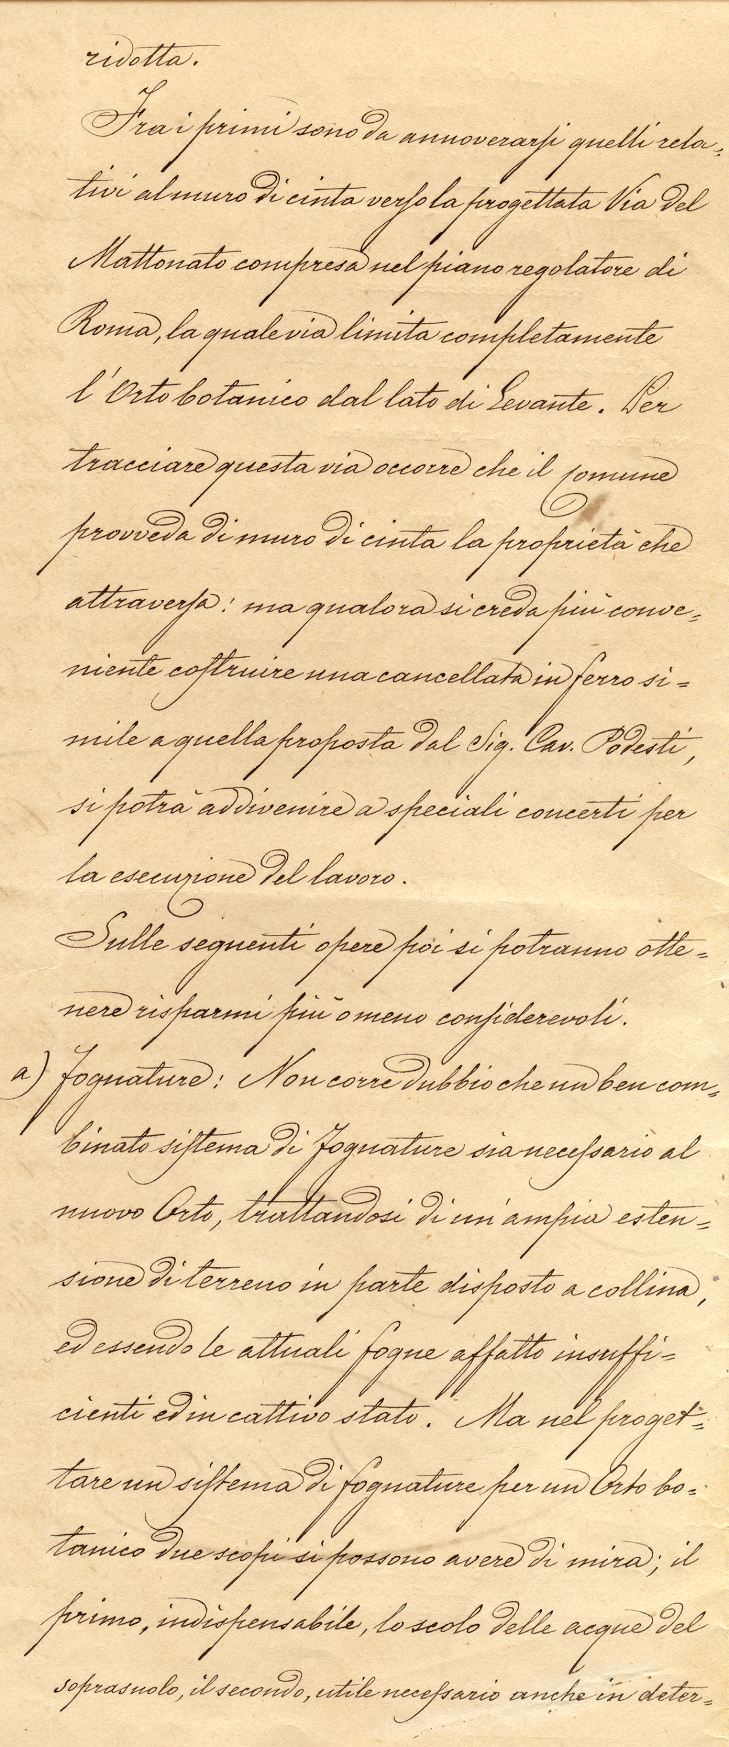 ridotta.
Fra i primi sono da annoverarsi quelli rela=
tivi al muro di cinta verso la progettata Via del
Mattonato compresa nel piano regolatore di
Roma, la quale via limita completamente
l'Orto botanico dal lato di Levante. Per
tracciare questa via occorre che il Comune
provveda di muro di cinta la proprietà che
attraversa: ma qualora si creda più conve=
niente costruire una cancellata in ferro si=
mile a quella proposta dal Sig. Cav. Podesti,
si potrà addivenire a speciali concerti per
la esecuzione del lavoro.
Sulle seguenti opere poi si potranno otte=
nere risparmi più o meno considerevoli.
a) Fognature: Non corre dubbio che un ben com=
binato sistema di Fognature sia necessario al
nuovo Orto, trattandosi di un'ampia esten=
sione di terreno in parte disposto a collina,
ed essendo le attuali fogne affatto insuffi=
cienti ed in cattivo stato. Ma nel proget=
tare un sistema di fognature per un Orto bo=
tanico due scopi si possono avere di mira; il
primo, indispensabile, lo scolo delle acque del
soprasuolo, il secondo, utile necessario anche in deter=